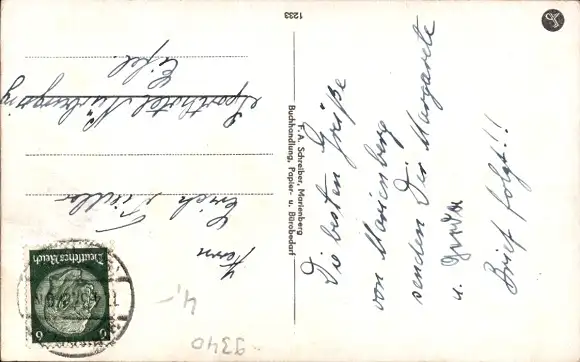 Die besten Grüße
von Marienberg
senden Dir Margarete
u. Gerda
Brief folgt!!
F. A. Schreiber, Marienberg
Buchhandlung, Papier- u. Bürobedarf
1233
Herrn
Erich Fiedler
Sporthotel Nürburgring
Eifel
Deutsches Reich
6 6
4,-
9340